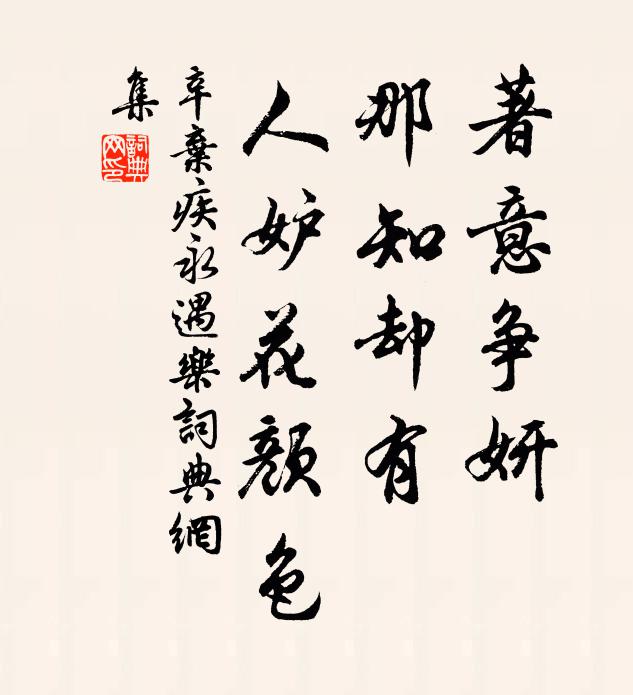 著意争妍
那知却有
人妒花顔色
辛棄疾永遇樂詞典網
集
詞典網印